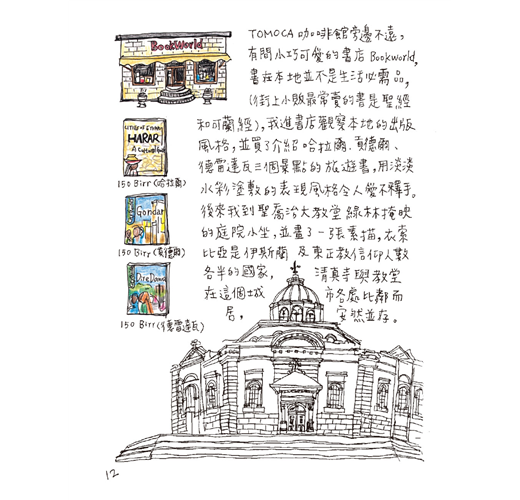 BookWorld
TOMOCA 咖啡館旁邊不遠，
有間小巧可愛的書店 Bookworld，
書在本地並不是生活必需品，
(街上小販最常賣的書是聖經
和可蘭經)，我進書店觀察本地的出版
風格，並買了介紹哈拉爾、貢德爾、
德雷達瓦三個景點的旅遊書，用淡淡
水彩塗敷的表現風格令人愛不釋手。
後來我到聖喬治大教堂綠林掩映
的庭院小坐，並畫了一張素描，衣索
比亞是伊斯蘭及東正教信仰人數
各半的國家，清真寺與教堂
在這個城市各處比鄰而
居，安然並存。
HARAR
150 Birr (哈拉爾)
Gondar
150 Birr (貢德爾)
Dire Dawa
150 Birr (德雷達瓦)
12